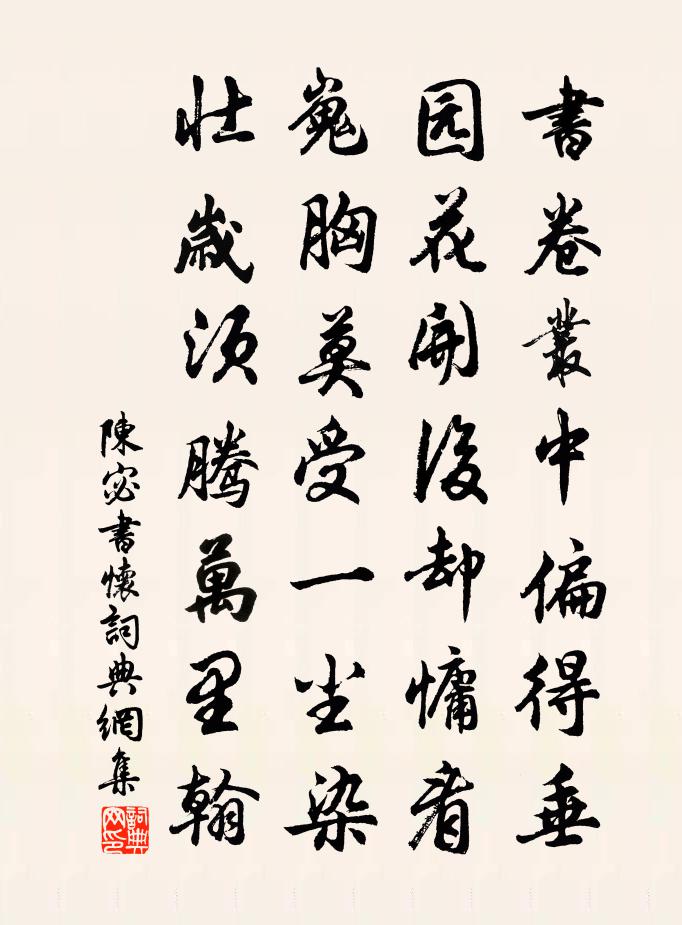 書卷叢中偏得垂
园花開後却慵看
嵬胸莫受一尘染
壮歲須騰萬里翰
陳宓書懷詞典網集
詞典
网印